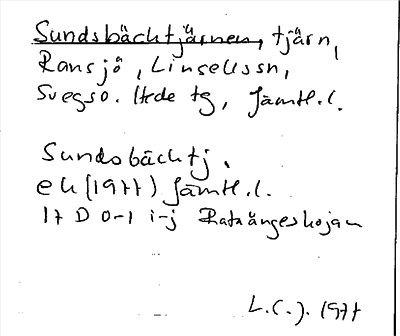 Sundsbäcktjärnen, tjärn,
Ransjö, Linsellssn,
Svegs o. Hede tg, Jämtl.l.
Sundsbäcktj.
ek (1977) Jämtl.l.
17 D 0-1 i-j Ratångeskojan
L.C.J. 1977